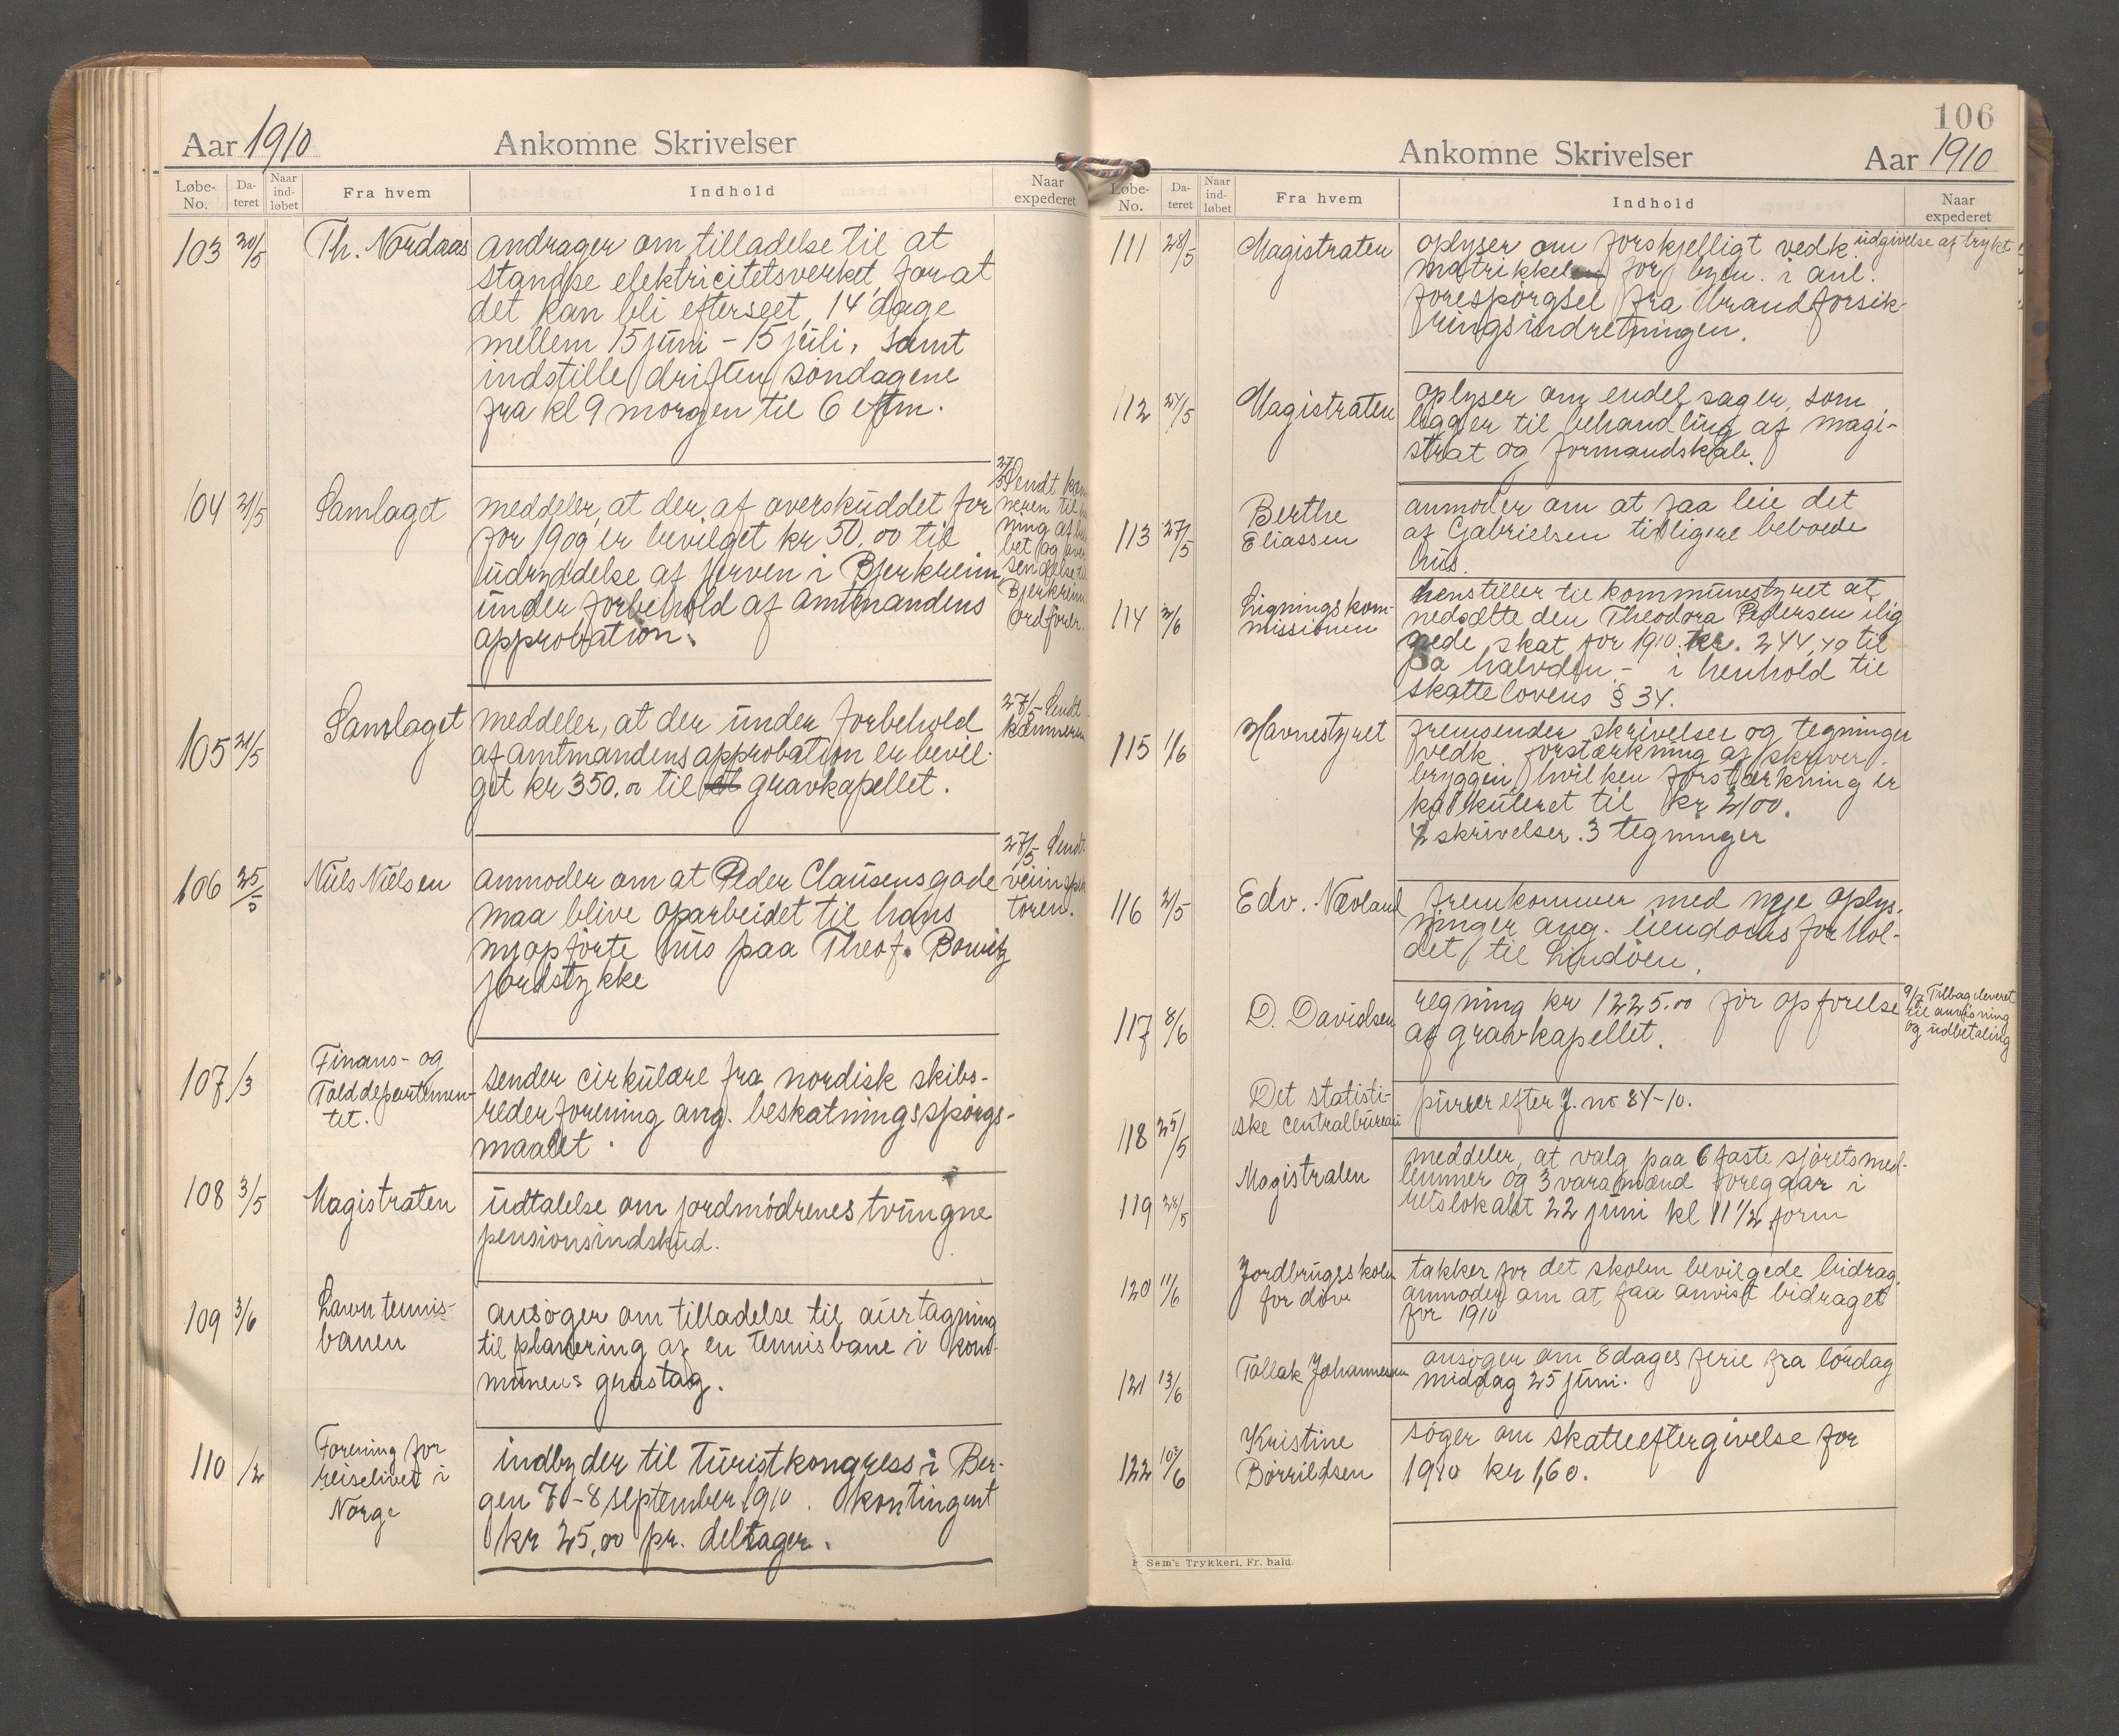 Aar 1910
Ankomne Skrivelser
Løbe-No.
Da-teret
Naar ind-løbet
Fra hvem
Indhold
Naar expederet
103 20/5 Th. Nordaas andrager om tilladelse til at
standse elektricitetsverket, for at
det kan bli efterseet, 14 dage
mellem 15 juni - 15 juli, samt
indstille driften søndagene
fra kl 9 morgen til 6 eftm.
104 21/5 Samlaget meddeler, at der af overskuddet for
for 1909 er bevilget kr 50,00 til
udryddelse af jerven i Bjerkreim
under forbehold af amtmandens
approbation.
27/5 Sendt
neren til
ning af
bet og
sendelse til
Bjerkreim
ordfører.
105 21/5 Samlaget meddeler, at der under forbehold
af amtmandens approbation er bevil-
get kr 350.00 til gravkapellet.
27/5 Sendt
kæmneren
106 25/5 Niels Nielsen anmoder om at Peder Clausens gade
maa blive oparbeidet til hans
nyopførte hus paa Theof. Bowitz
jordstykke
27/5 Sendt
veiinspek
tøren.
107 /3 Finans- og
Tolddepartemen-
tet.
sender cirkulære fra nordisk skibs-
rederforening ang. beskatningsspørgs-
maalet.
108 3/5 Magistraten udtalelse om jordmødrenes tvungne
pensionsindskud.
109 3/6 Lawn tennis-
banen
ansøger om tilladelse til aurtagning
til planering af en tennisbane i kom-
munens grustag.
110 /2 Forening for
reiselivet i
Norge
indbyder til turistkongress i Ber-
gen 7-8 september 1910. kontingent
kr 25,00 pr. deltager.
106
Ankomne Skrivelser
Aar 1910
Løbe-No.
Da-teret
Naar ind-løbet
Fra hvem
Indhold
Naar expederet
111 28/5 Magistraten oplyser om forskjelligt vedk. udgivelse af trykt
matrikkel for byen i anl.
forespørgsel fra brandforsik-
ringsindretningen.
112 21/5 Magistraten oplyser om endel sager, som
ligger til behandling af magi-
strat og formandskab.
113 27/5 Berthe
Eliassen
anmoder om at faa leie det
af Gabrielsen tidligere beboede
hus.
114 2/6 Ligningskom-
missionen
henstiller til kommunestyret at
nedsætte den Theodora Pedersen ilig
nede skat for 1910 kr. 244,40 til
paa halvden - i henhold til
skattelovens § 34.
115 1/6 Havnestyret fremsender skrivelser og tegninger
vedk. forstærkning af skriver-
bryggen, hvilken forstærkning er
kalkuleret til kr 2100.
4 skrivelser. 3 tegninger
116 21/5 Edv. Nævland fremkommer med nye oplys-
ninger ang. eiendomsforhol-
det til Lindøen.
117 8/6 D. Davidsen regning kr 1225.00 for opførelse
af gravkapellet.
9/7 Tilbageleveret
til anvisning
og udbetaling
118 25/5 Det statisti-
ske centralbureau
purrer efter J. no 84-10.
119 28/5 Magistraten meddeler, at valg paa 6 faste sjøretsmed-
lemmer og 3 varamænd foregaar i
retslokalet 22 juni kl 11 1/2 form
120 11/6 Jordbrugsskolen
for døve
takker for det skolen bevilgede bidrag,
anmoder om at faa anvist bidraget
for 1910
121 13/6 Tollak Johannesen ansøger om 8 dages ferie fra lørdag
middag 25 juni.
122 10/6 Kristine
Børrildsen
søger om skatteeftergivelse for
1910 kr 1,60.
Sem's Trykkeri, Fr. hald.